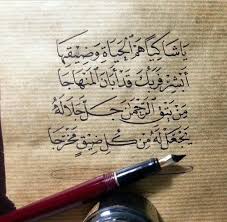 يا شاكيا هم الحياة وضيقها
أبشر فربك قد أبان المنهجا
من يتق الرحمن جل جلاله
يجعل له من كل ضيق مخرجا